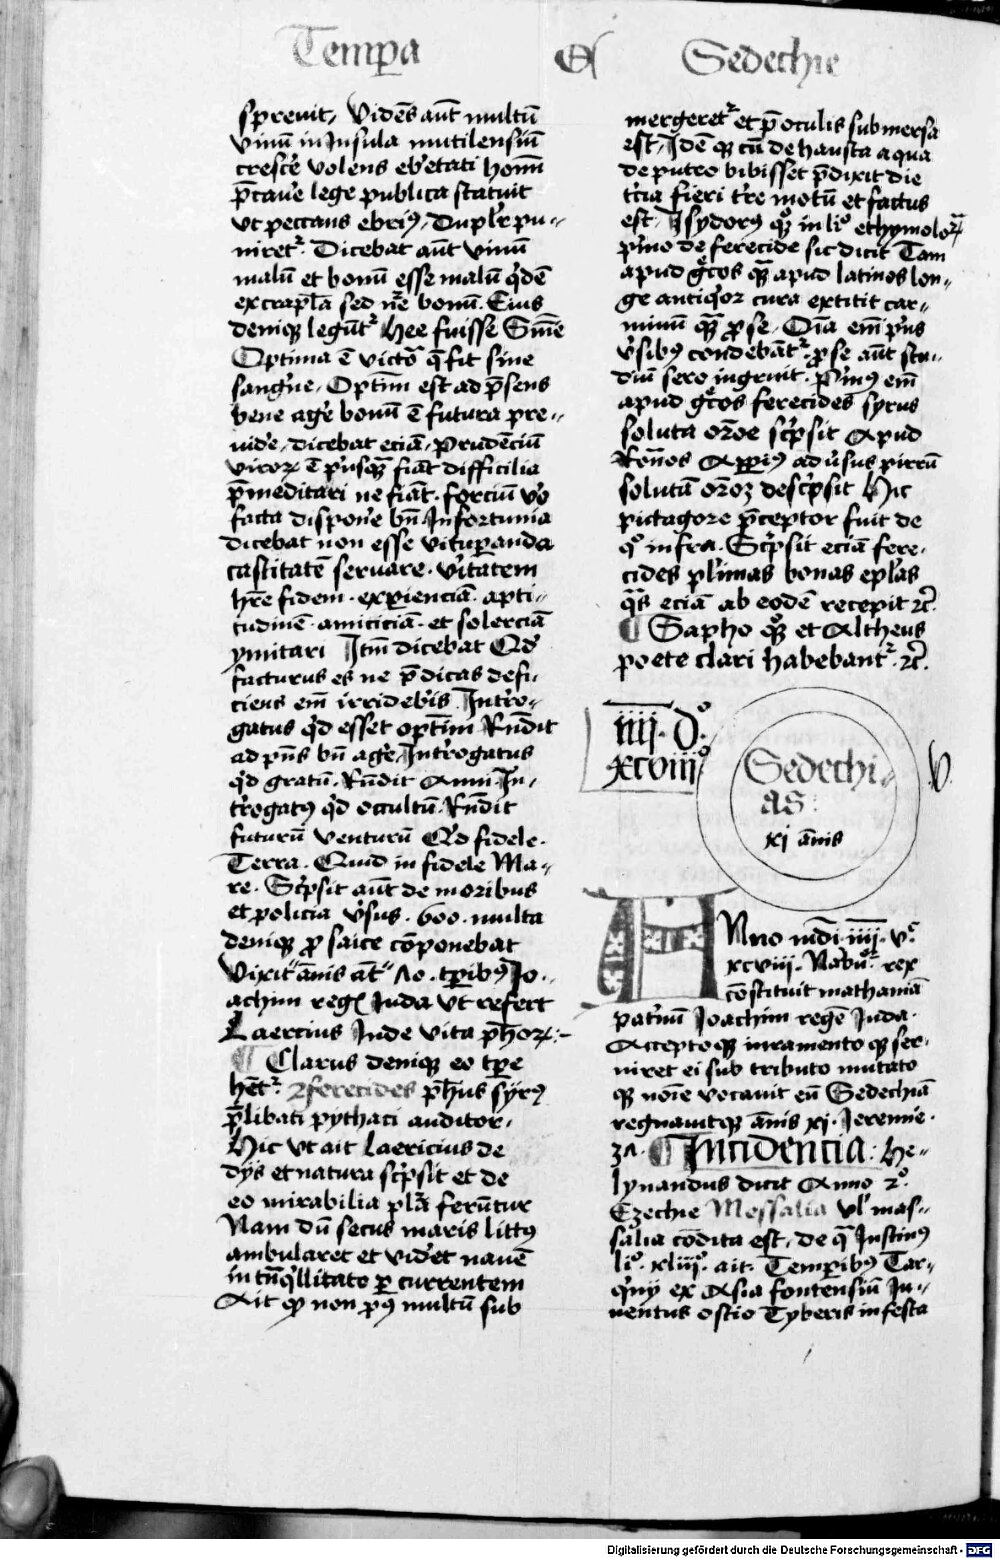 Tempa
Et
Sedechie
spreuit. Videns aut multū
vinū in Insula mutilensiū
crescere volens ebrietati homīn
p̄cauere lege publica statuit
vt peccans ebri9 dupl'r pu-
niret᷑. Dicebat aūt vinū
malū et bonū esse malū q'dē
ex crapl'a sed n̄re bonū. Eius
deniq legūt᷑ hee fuisse Sn̄ie
Optima ē victor̄ q̄ fit sine
sang'ne. Optīm est ad p̄sens
bene age bonū ē futura pre-
uide. dicebat eciā. prudēciū
viroꝝ ē p'usqꝫ fiāt difficilia
p̄meditari ne fiāt. forciū v'o
facta dispon'e bn̄. Infortunia
dicebat non esse vitup̲anda
castitatē seruare. v'itatem
hr̄e fidem. exp̲ienciā. apti-
tudinē. amiciciā. et solerciā
ymitari Itm̄ dicebat Qd'
facturus es ne p̄dicas defi-
ciens em̄ irrideb'is. Int'ro-
gatus q'd esset optīm Rn̄dit
ad p̄ns bn̄ age. Int'rogatus
q'd gratū. Rn̄dit Anni. In-
t'rogat9 q'd occultū. Rn̄dit
futurū venturū Qd' fidele.
Terra. Quid in fidele Ma-
re. Sc'psit aūt de moribus
et policia v'sus. 600. multa
deniq ꝓ saice cōponebat
vixit" ānis āt" ʌo. tp̲ibꝫ Jo-
achim reg̨ Iuda vt refert
Laercius Inde vita ph'oꝝ:-
¶ Clarus deniq eo tp̲e
hēt᷑ ferecides ph'us syr9
p̄libati pythaci auditor.
Hic vt ait Laericius de
dijs et natura sc'psit et de
eo mirabilia pl'a ferūtur
Nam dū secus maris litt9
ambularet et vid'et nauē
in tn̄q'llitato p̲ currentem
Ait qꝫ non p9 multū sub
mergeret᷑ et p̄ oculis submersa
est. Idē qꝫ cū de hausta aqua
de puteo bibisset p̄dixit die
t'cia fieri t're motū et factus
est. Isydor9 qºꝫ in liº ethymoloꝝ
p'mo de ferecide sic dicit Tam
apud g'cos qꝫ apud latinos lon-
ge antiq'or cura extitit car-
minū qꝫ ꝓse. Oīa em̄ p'us
v'sibꝫ condebāt᷑. ꝓse aūt stu-
diū sero ingruit. P'm9 em̄
apud g'cos ferecides syrus
soluta orōe sc'psit Apud
Romos App̲i9 ad'usus pirrū
solutā orōeꝫ desc'psit Hic
pictagore p̄ceptor fuit de
qº infra. Sc'psit eciā fere-
cides pl'imas bonas epl'as
q̄s eciā ab eodē recepit ⁊c̄.
¶ Sapho qºꝫ et Altheus
poete clari habebant᷑. ⁊c̄.
iiij. Dº
xcviiiº
Sedechi-
as:
xi ānis
b
Anno mūdi. iiij. vᶜ
xcviij. Nabuᵒ᷑ rex
cōstituit mathaniā
pat'uū Joachim regē Iuda.
Acceptoqꝫ iuramento qꝫ ser-
uiret ei sub tributo mutato
qꝫ nōie vocauit eū Sedechiā
regnauitqꝫ ānis xi. Jeremie.
3ʌ. ¶ Incidencia: He-
lynandus dicit Anno 2º
Ezechie Messalia vl' mas-
salia cōdita est. de q̄ Iustin9
liº. xliiiº. ait. Temp̲ibꝫ Tar-
q'nij ex Asia fontensiū Iu-
uentus ostio Tyberis infesta
Digitalisierung gefördert durch die Deutsche Forschungsgemeinschaft - DFG